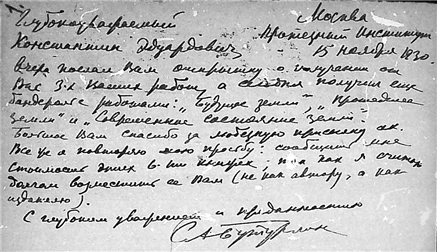 Глубокоуважаемый Москва
Константин Эдуардович, Пушной Институт
15 ноября 1930.
Вчера послал Вам открытку о получении от
Вас 3-х Ваших работ, а сегодня получил еще
бандероль с работами: „Будущее земли", „Прошедшее
земли" и „Современное состояние земли".
Большое Вам спасибо за любезную присылку их.
Все же я повторяю мою просьбу: сообщить мне
стоимость этих 6-ти книжек, т.к. я считаю
должным возместить ее Вам (не как автору, а как
издателю).
С глубоким уважением и преданностью
С А Бутурлин